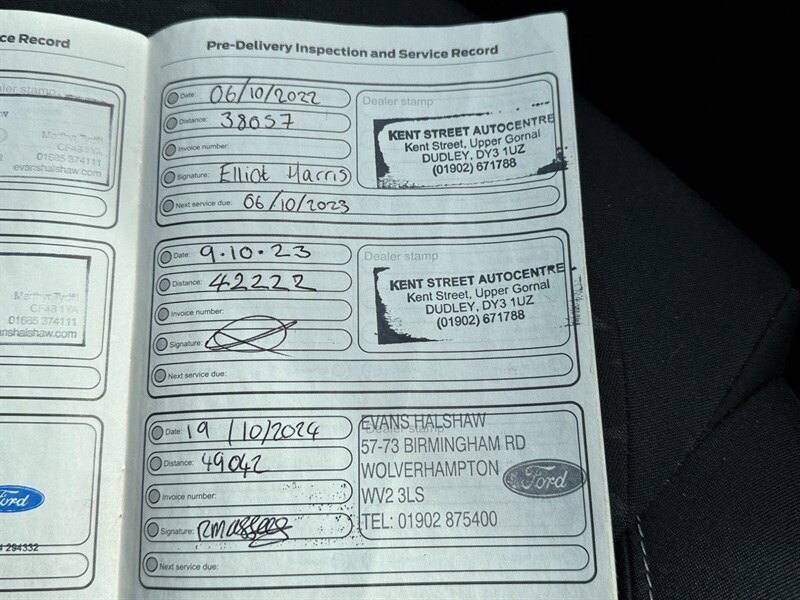 ce Record
aler stamp
w
Merthyr Tydfil
CF48 1YA
01685 374111
evanshalshaw.com
Merthyr Tydfil
CF48 1YA
01685 374111
nshalshaw.com
ord
294332
Pre-Delivery Inspection and Service Record
Date: 06/10/2022
Distance: 38057
Invoice number:
Signature: Elliot Harris
Next service due: 06/10/2023
Dealer stamp
KENT STREET AUTOCENTRE
Kent Street, Upper Gornal
DUDLEY, DY3 1UZ
(01902) 671788
Date: 9.10.23
Distance: 42222
Invoice number:
Signature:
Next service due:
Dealer stamp
KENT STREET AUTOCENTRE
Kent Street, Upper Gornal
DUDLEY, DY3 1UZ
(01902) 671788
Date: 19/10/2024
Distance: 49042
Invoice number:
Signature:
Next service due:
Dealer stamp
EVANS HALSHAW
57-73 BIRMINGHAM RD
WOLVERHAMPTON
WV2 3LS
TEL: 01902 875400
Ford